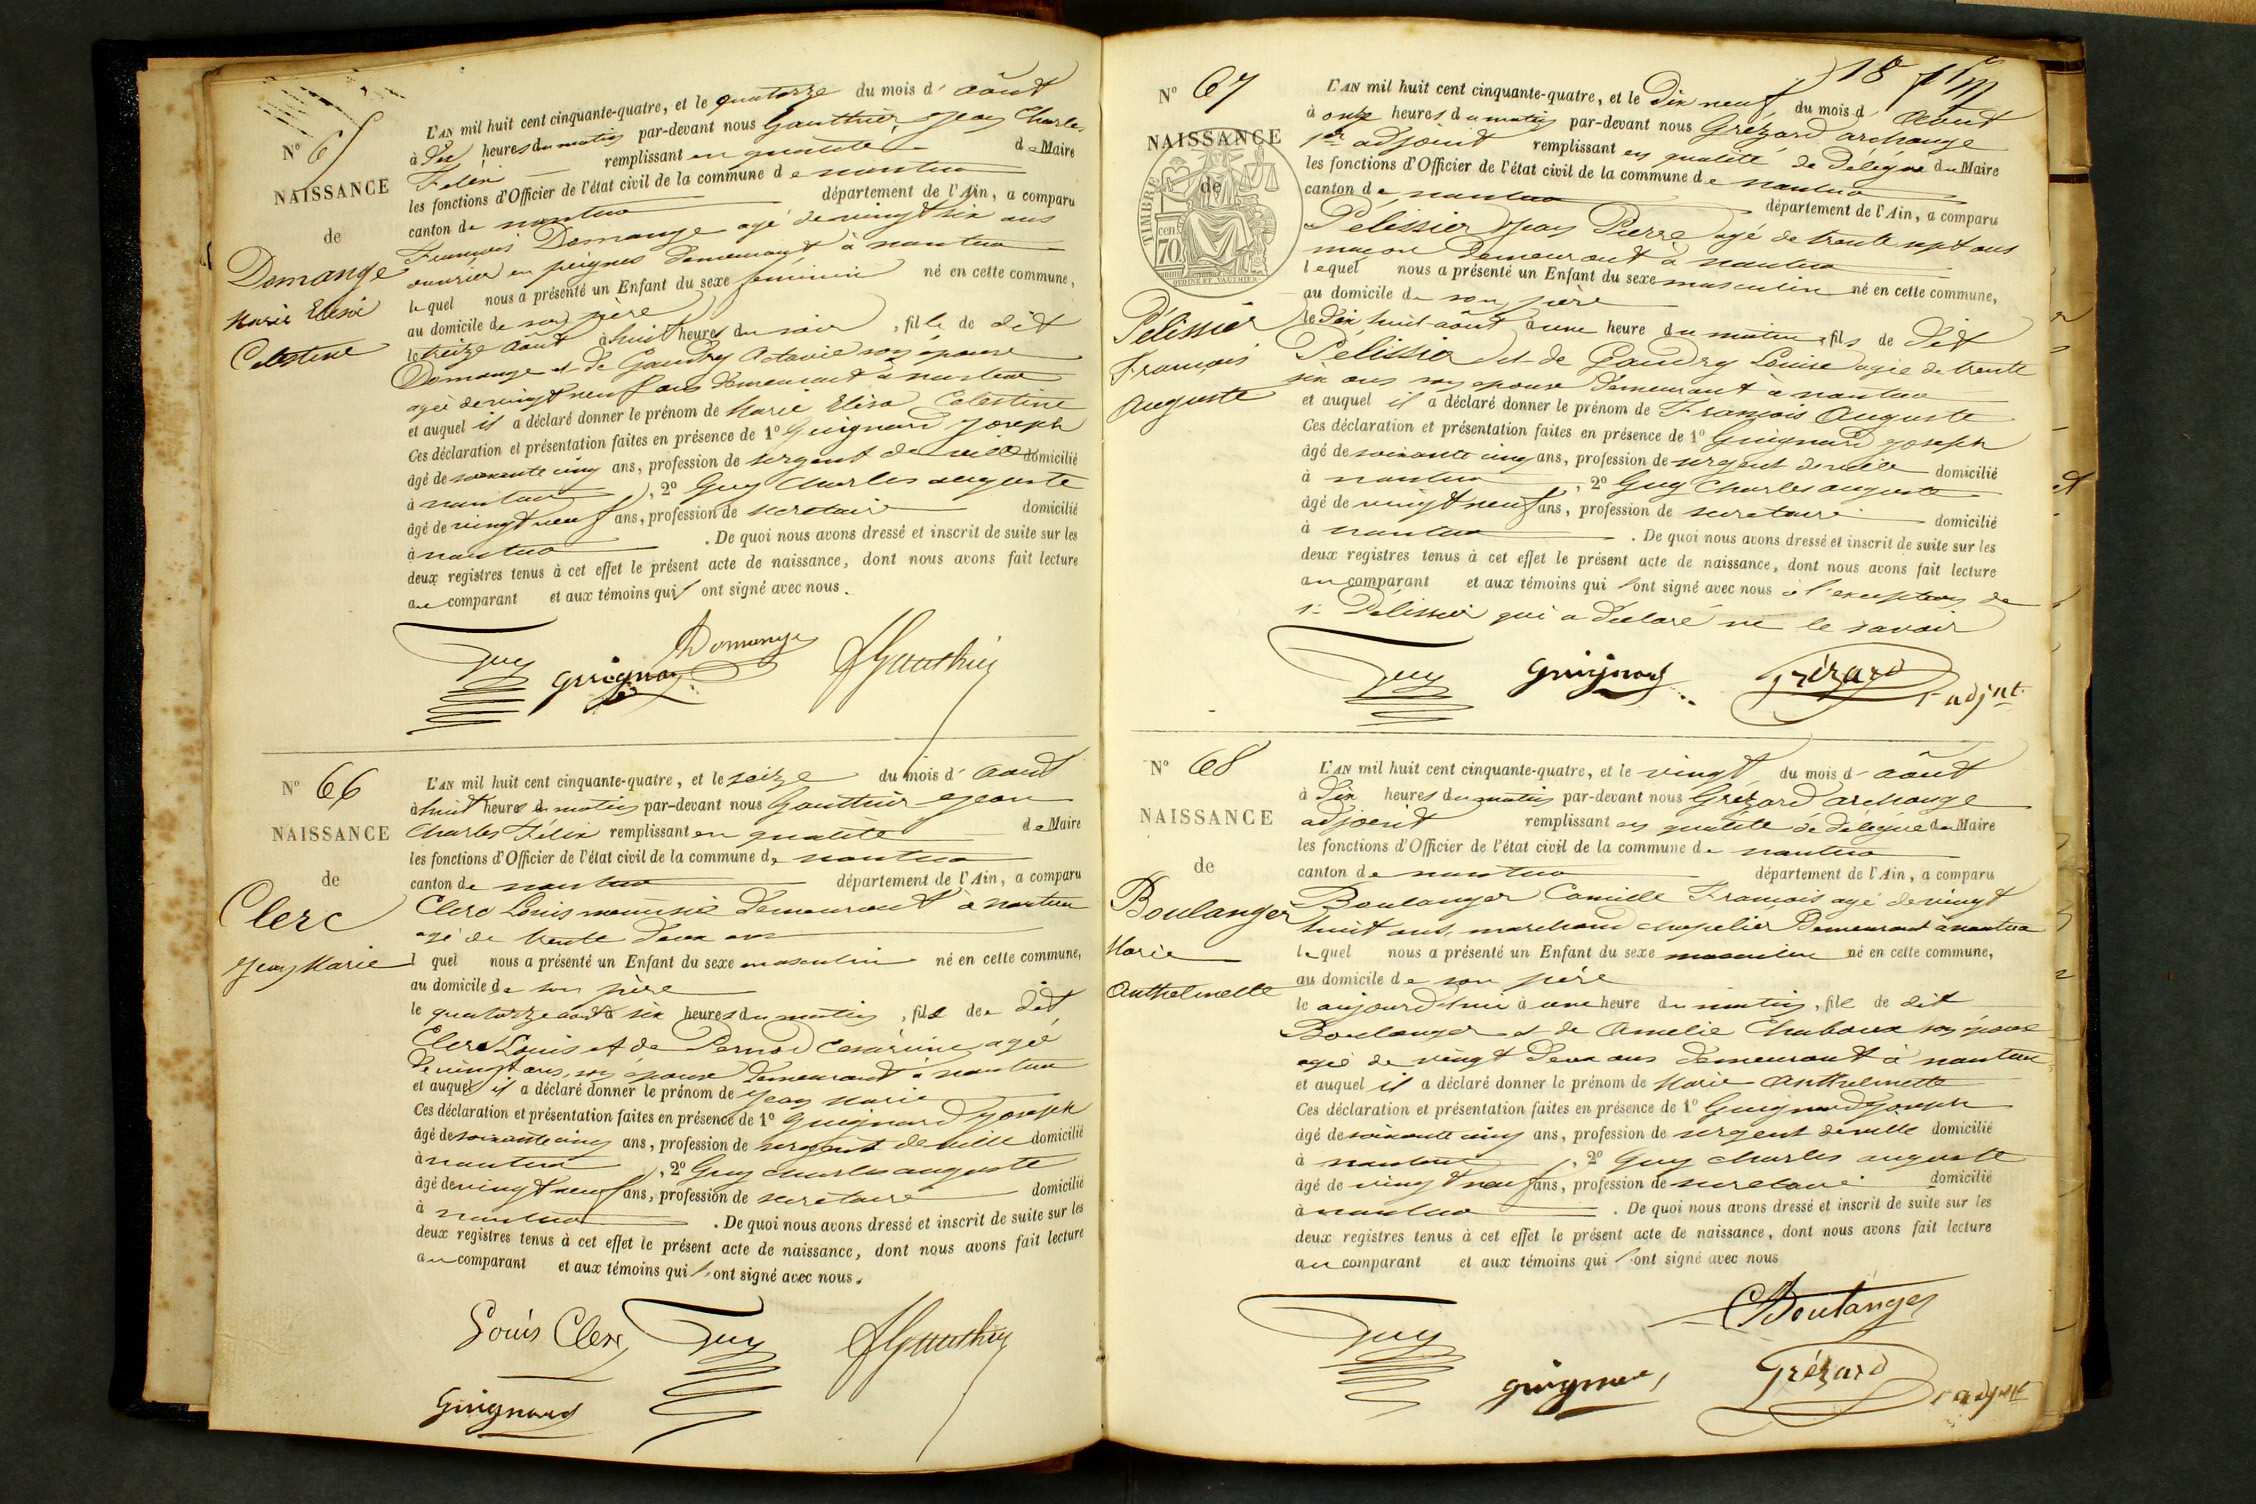 N° 65
NAISSANCE
de
Domange
Marie Elisa
Celestine
L'AN mil huit cent cinquante-quatre, et le quatorze du mois d' août
à dix heures du matin par-devant nous Gauthier Jean Charles
Felix remplissant en qualité de Maire
les fonctions d'Officier de l'état civil de la commune de nantua
canton de nantua département de l'Ain, a comparu
François Domange agé de vingt six ans
ouvrier en peignes demeurant à nantua
lequel nous a présenté un Enfant du sexe feminin né en cette commune,
au domicile de son père
le treize août à huit heures du soir, fille de dit
Domange et de Gaudry Octavie son épouse
agée de vingt neuf ans demeurant à nantua
et auquel il a déclaré donner le prénom de Marie Elisa Celestine
Ces déclaration et présentation faites en présence de 1° Guignard Joseph
âgé de soixante cinq ans, profession de sergent de ville domicilié
à nantua, 2° Guy Charles auguste
âgé de vingt neuf ans, profession de secretaire domicilié
à nantua. De quoi nous avons dressé et inscrit de suite sur les
deux registres tenus à cet effet le présent acte de naissance, dont nous avons fait lecture
au comparant et aux témoins qui ont signé avec nous.
Domange
Guy Guignard JGauthier
N° 66
NAISSANCE
de
Clerc
Jean Marie
L'AN mil huit cent cinquante-quatre, et le seize du mois d' août
à huit heures du matin par-devant nous Gauthier Jean
Charles Félix remplissant en qualité de Maire
les fonctions d'Officier de l'état civil de la commune de nantua
canton de nantua département de l'Ain, a comparu
Clerc Louis menuisié demeurant à nantua
agé de trente deux ans
l quel nous a présenté un Enfant du sexe masculin né en cette commune,
au domicile de son père
le quatorze août à six heures du matin, fils de dit
Clerc Louis et de Pernod Cesarine agée
de vingt ans, son épouse demeurant à nantua
et auquel il a déclaré donner le prénom de Jean Marie
Ces déclaration et présentation faites en présence de 1° Guignard Joseph
âgé de soixante cinq ans, profession de sergent de ville domicilié
à nantua, 2° Guy Charles auguste
âgé de vingt neuf ans, profession de secretaire domicilié
à nantua. De quoi nous avons dressé et inscrit de suite sur les
deux registres tenus à cet effet le présent acte de naissance, dont nous avons fait lecture
au comparant et aux témoins qui ont signé avec nous.
Louis Clerc Guy JGauthier
Guignard
18
N° 67
NAISSANCE
de
TIMBRE
cent
70
Pélissier
François
Auguste
L'AN mil huit cent cinquante-quatre, et le Dix neuf du mois d' Août
à onze heures du matin par-devant nous Grézard archange
1er adjoint remplissant en qualité de délégué du Maire
les fonctions d'Officier de l'état civil de la commune de nantua
canton de nantua département de l'Ain, a comparu
Pelissier Jean Pierre agé de trente sept ans
maçon demeurant à nantua
lequel nous a présenté un Enfant du sexe masculin né en cette commune,
au domicile de son père
le dix huit août à une heure du matin, fils de dit
Pélissier et de Gaudry Louise agée de trente
six ans son epouse demeurant à nantua
et auquel il a déclaré donner le prénom de François Auguste
Ces déclaration et présentation faites en présence de 1° Guignard Joseph
âgé de soixante cinq ans, profession de sergent de ville domicilié
à nantua, 2° Guy Charles auguste
âgé de vingt neuf ans, profession de secretaire domicilié
à nantua. De quoi nous avons dressé et inscrit de suite sur les
deux registres tenus à cet effet le présent acte de naissance, dont nous avons fait lecture
au comparant et aux témoins qui ont signé avec nous à l'exception de
Pélissier qui a déclaré ne le savoir
Guy Guignard Grézard
adjnt
N° 68
NAISSANCE
de
Boulanger
Marie
Anthelmette
L'AN mil huit cent cinquante-quatre, et le vingt du mois d' août
à dix heures du matin par-devant nous Grézard archange
adjoint remplissant en qualité de délégué du Maire
les fonctions d'Officier de l'état civil de la commune de nantua
canton de nantua département de l'Ain, a comparu
Boulanger Camille François agé de vingt
huit ans, marchand chapelier demeurant à nantua
lequel nous a présenté un Enfant du sexe masculin né en cette commune,
au domicile de son père
le aujourd'hui à une heure du matin, fils de dit
Boulanger et de Amelie Chaboux son épouse
agée de vingt deux ans demeurant à nantua
et auquel il a déclaré donner le prénom de Marie Anthelmette
Ces déclaration et présentation faites en présence de 1° Guignard Joseph
âgé de soixante cinq ans, profession de sergent de ville domicilié
à nantua, 2° Guy Charles auguste
âgé de vingt neuf ans, profession de secretaire domicilié
à nantua. De quoi nous avons dressé et inscrit de suite sur les
deux registres tenus à cet effet le présent acte de naissance, dont nous avons fait lecture
au comparant et aux témoins qui ont signé avec nous
CBoulanger
Guy Guignard Grézard
adjnt